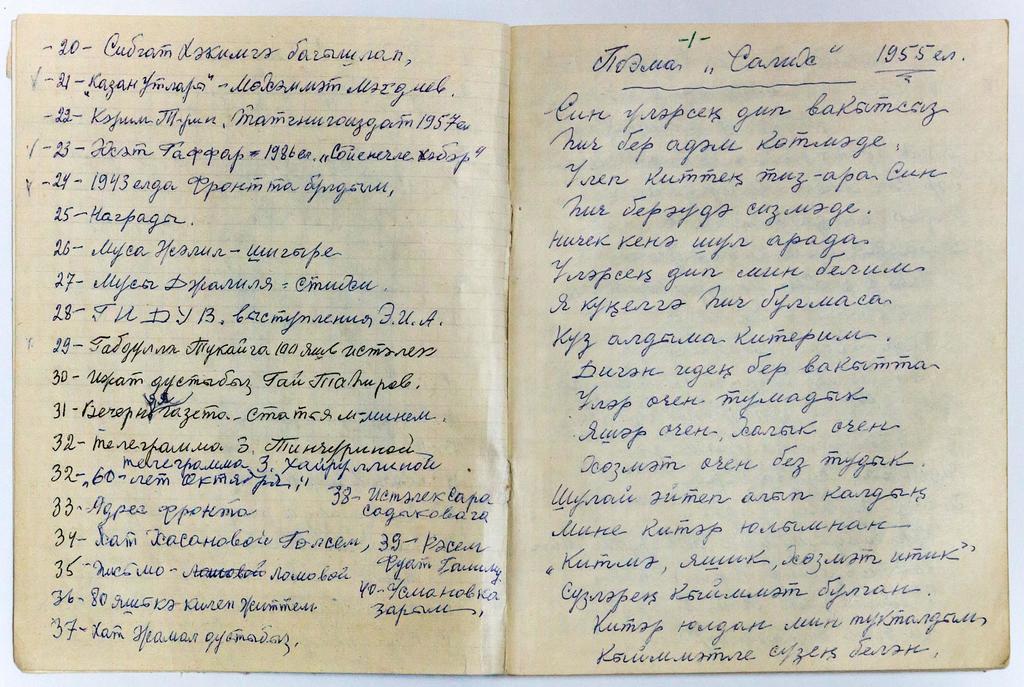 -20- Сибгат Хәкимгә багышлап,
-21- „Казан Утлары" - Мөхәммәт Мәһдиев.
-22- Кәрим Т-рин. Таткнигоиздат 1957 ел
-23- Әсәт Гаффар - 1986 ел. „Сөенечле хәбәр"
-24- 1943 елда фронтта булдым,
25- Награды.
26- Муса Җәлил - шигыре
27- Мусы Джалиля - стихи.
28- ГИДУВ. выступления Э.И.А.
29- Габдулла Тукайга 100 яшь истәлек
30- Иҗат дустыбыз Гай Таһиров.
31- Вечерняя газета - статья м-минем.
32- телеграмма З. Тинчуриной
телеграмма З. Хайруллиной
32- „60-лет Октября,"
33- Адрес фронта
38- Истәлек Сара Садыковага
34- Хат Хасановой Гөлсем,
39- Рәсем Фуат
35- Письмо - Ломовой
36- 80 яшькә килеп җиттем
40- Усмановка Зарыйм,
37- Хат Җамал дустыбыз,
-1-
Поэма „Сәлидә" 1955 ел.
Син үләрсең дип вакытсыз
Һич бер адәм көтмәде,
Үлеп киттең тиз-ара Син
Һич берәүдә сизмәде.
Ничек кенә шул арада
Үләрсең дип мин белим
Я күңелгә һич булмаса
Күз алдыма китерим.
Дигән идең бер вакытта
Үләр өчен тумадык
Яшәр өчен, халык өчен
Хөзмәт өчен без тудык.
Шулай әйтеп алып калдың
Мине китәр юлымнан
„Китмә, яшик, хөзмәт итик"
Сүзләрең кыйммәт булган.
Китәр юлдан мин тукталдым
Кыйммәтле сүзең белән,